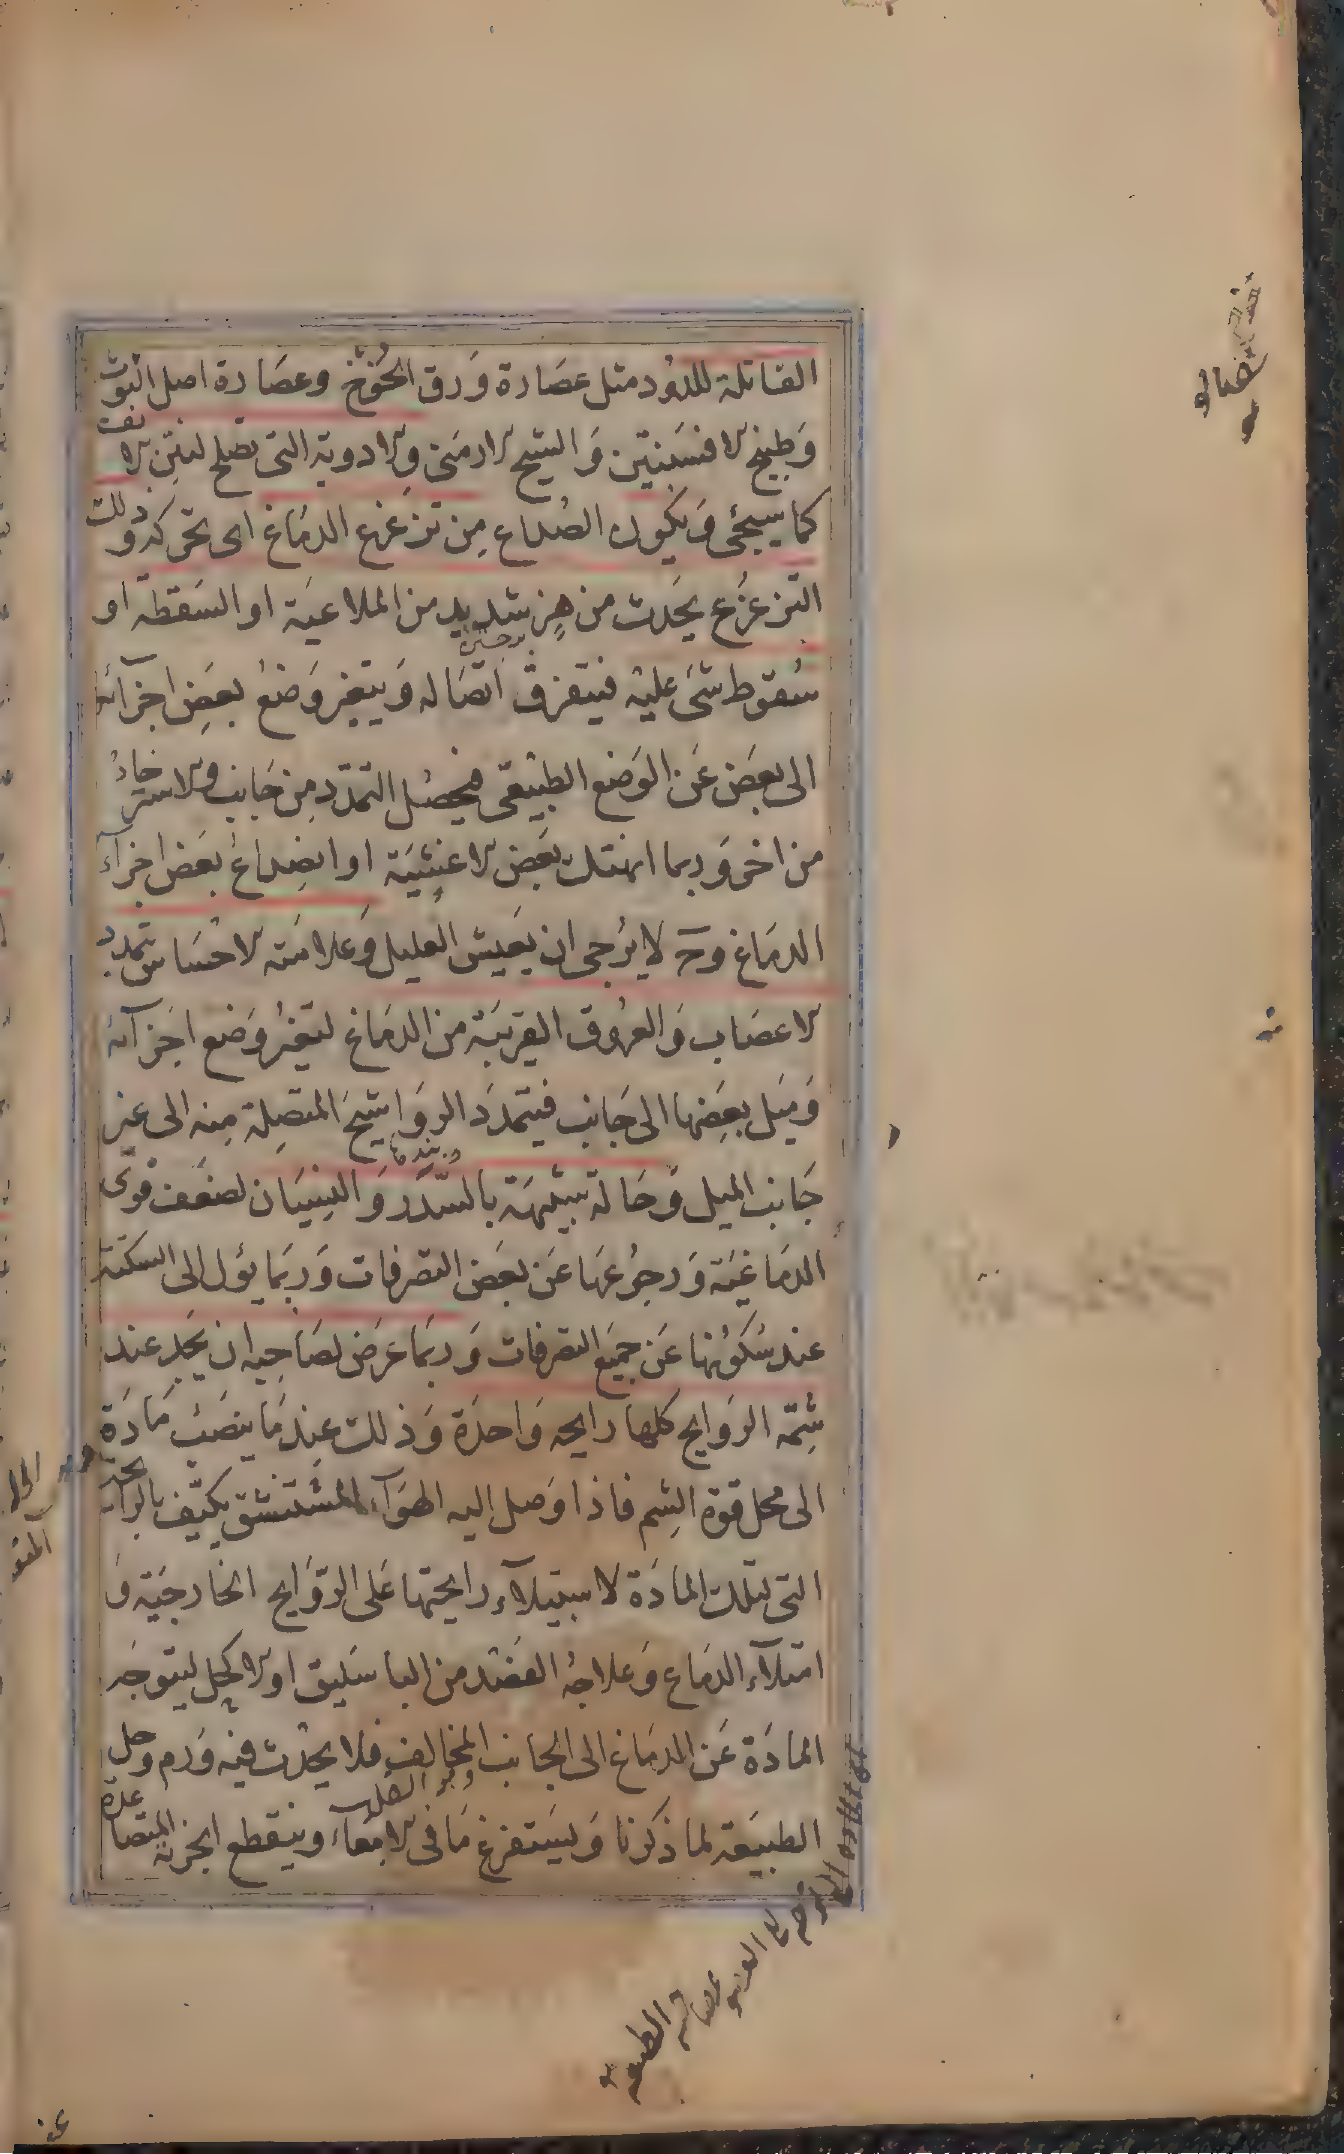 القاتلة للدود مثل عصارة وَرق الخوخ وعصَارة اصل التوث
وَطبيخ الافسَنتين وَالشيح الارمَنى والادوية التى تصلح لنتن الانف
كما سيجئ وَيكون الصُداع مِن تزعزع الدمَاغ اى تحركه وذلك
التزعزُع يحَدث من هزٍ شديد من الملاعبَة او السَقطة او
سُقوط شئ عليْه فيتفرق اتصَاله وَيتغير وَضعُ بعَضِ اجزآئه
الى بعَض عَن الوَضع الطبيْعى فيحصُل التمدّد مِن جَانب والاسترخاءُ
من اخر وَربما انهتك بعَض الاغشيَة او انصِداعُ بعَض اجزآء
الدمَاغ وحَ لا يرُجى ان يعَيش العليل وَعلامَته الاحْسَاس بتمدد
الاعصَاب وَالعرُوق القريبَة من الدمَاغ لتغيُر وَضع اجَزآئه
وَميَل بعَضِها الى جَانب فيتمدَد الروَاشيح المتصِلة مِنه الى غير
جَانب الميل وَحَالة شبيْهَة بالسّدَر وَالنِسيَان لضعَف قوى
الدمَاغيَة وَرجوُعهَا عَن بعَض التصرفات وَربمَا يؤل الى السكتة
عند سُكوُنها عَن جميَع التصرفات وَربمَا عرَض لصَاحبه ان يجَد عند
شِمّه الرَوايح كلها رايحه وَاحدَة وَذلك عِندمَا ينصَبُ مَادَة
الى محل قوة الشِم فاذا وَصل اليه الهوَآء المستنشق يكيّف بالرآيحة
التى لتلك المادَة لاستيلآء رايحتها عَلى الروَايح الخارجيَة وَ
امتلآء الدمَاغ وَعلاجهُ الفصْد من الباسَليق او الاكحل ليتوجَه
المادَة عَن الدمَاغ الى الجانب المخالف فلا يحدْث فيْه وَرم وحل
الطبيَعة لما ذكرنا وَليسَتفرغ مَا فى الامعَاء وينقطع ابخرته المتصاعدة